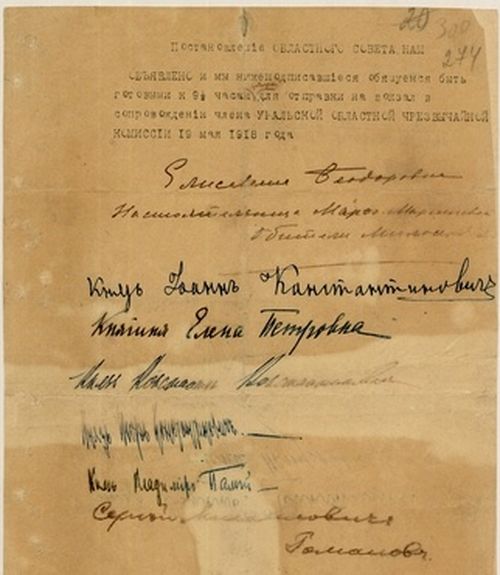 20 300
274
Постановленіе ОБЛАСТНОГО СОВЕТА НАМ
ОБЪЯВЛЕНО и мы нижеподписавшіеся обязуемся быть
готовыми к 9½ часам для отправки на вокзал в
сопровожденіи члена УРАЛЬСКОЙ ОБЛАСТНОЙ ЧРЕЗВЫЧАЙНОЙ
КОМИССІИ 19 мая 1918 года
Елисавета Феодоровна
Настоятельница Марфо Маріинской
Обители
Князь Іоаннъ Константиновичъ
Княгиня Елена Петровна
Князь Константинъ Константиновичъ
Князь Игорь Константиновичъ
Князь Владиміръ Палей
Сергей Михайловичъ
Романовъ.